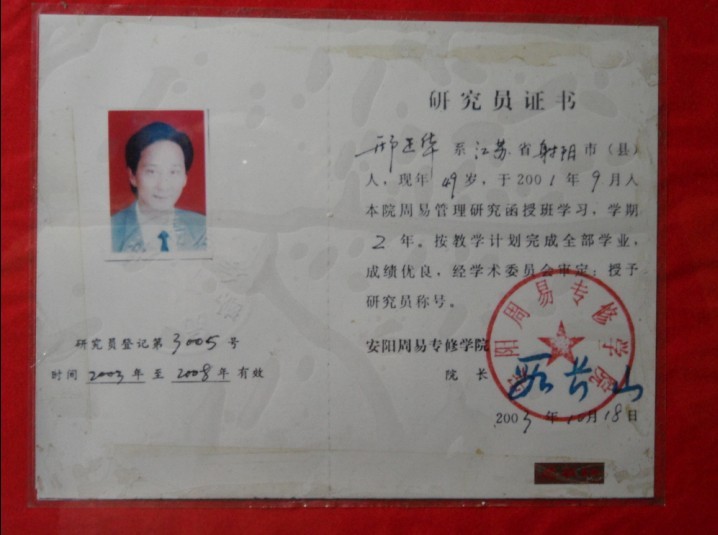 研究员登记第3005号
时间 2003年至2008年有效
研究员证书
邢正华 系江苏省射阳市（县）
人，现年49岁，于2001年9月入
本院周易管理研究函授班学习，学期
2年。按教学计划完成全部学业，
成绩优良，经学术委员会审定；授予
研究员称号。
安阳周易专修学院
院长 段长山
2003年10月18日
安阳周易专修学院